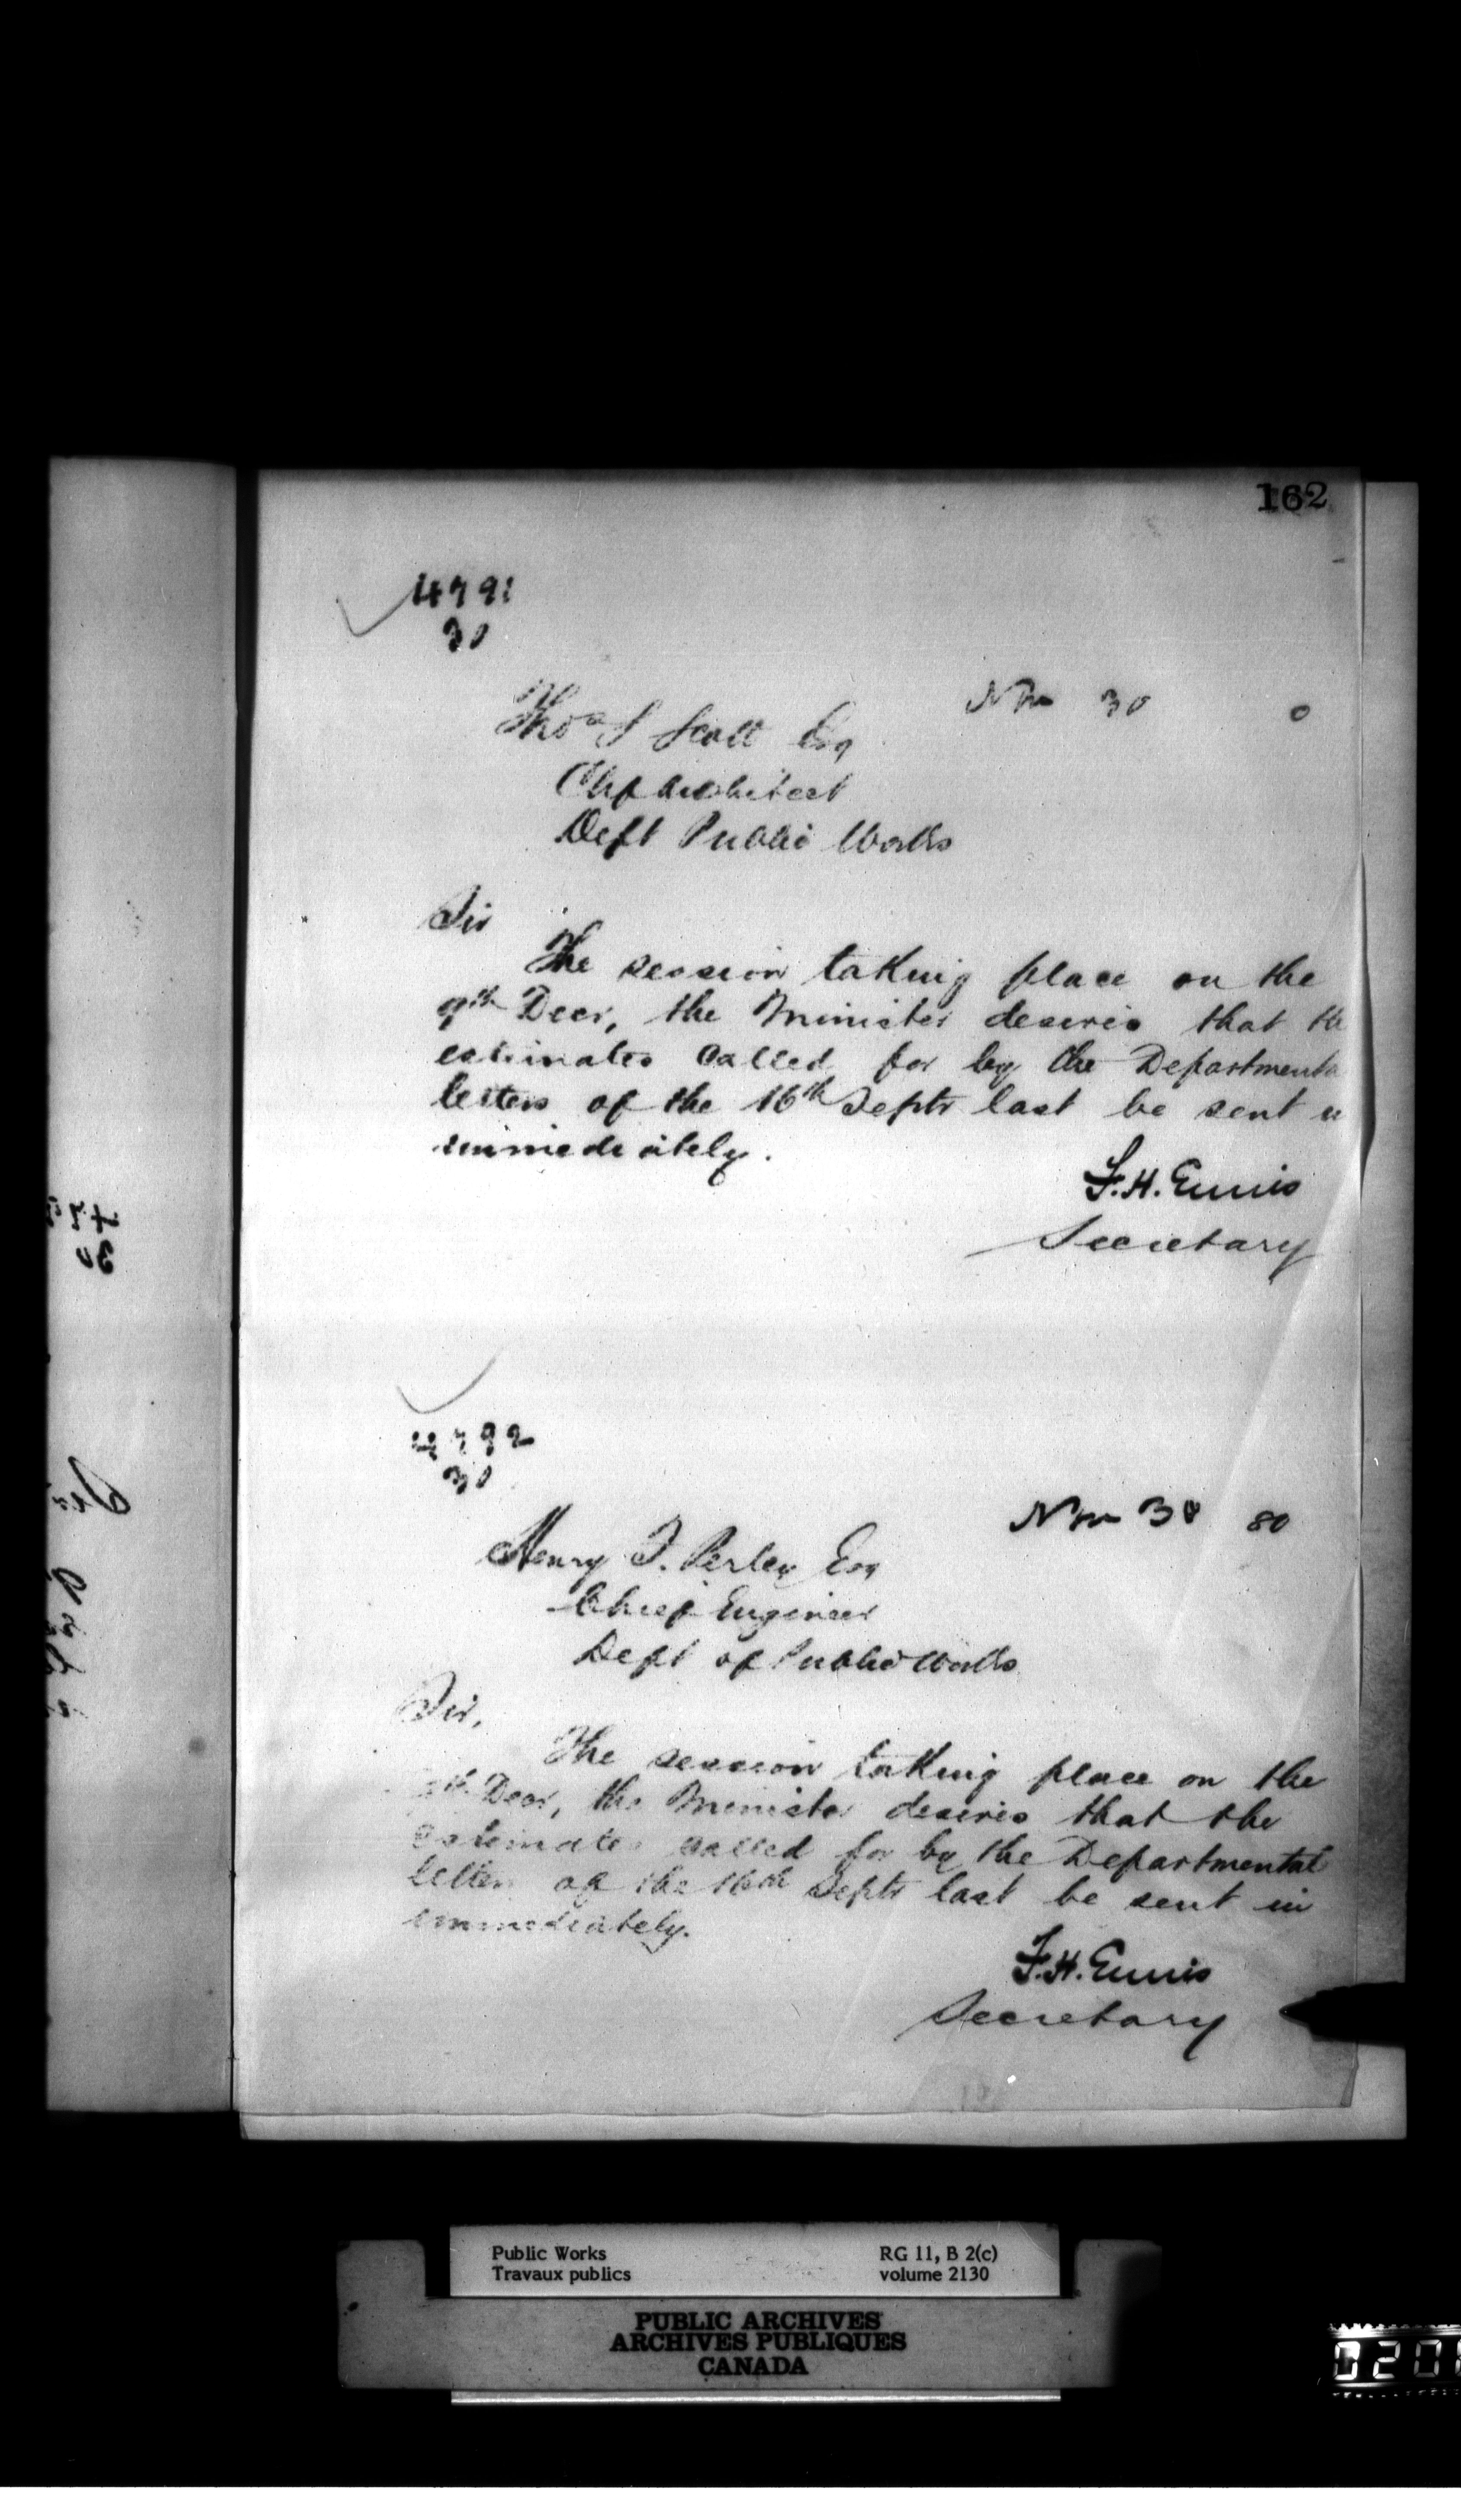 162
4791
30
Nov 30 0
Thos S Scott Esq
Chf Architect
Dept Public Works
Sir
The session taking place on the
9th Decr, the Minister desires that th
estimates called for by the Departmenta
letters of the 16th Septr last be sent
immediately.
F. H. Ennis
Secretary
4792
30
Nov 30 80
Henry F. Perley Esq
Chief Engineer
Dept of Public Works
Sir,
The session taking place on the
9th Decr, the Minister desires that the
estimates called for by the Departmental
letter of the 16th Septr last be sent in
immediately.
F. H. Ennis
Secretary
Public Works
Travaux publics
RG 11, B 2(c)
volume 2130
PUBLIC ARCHIVES
ARCHIVES PUBLIQUES
CANADA
020